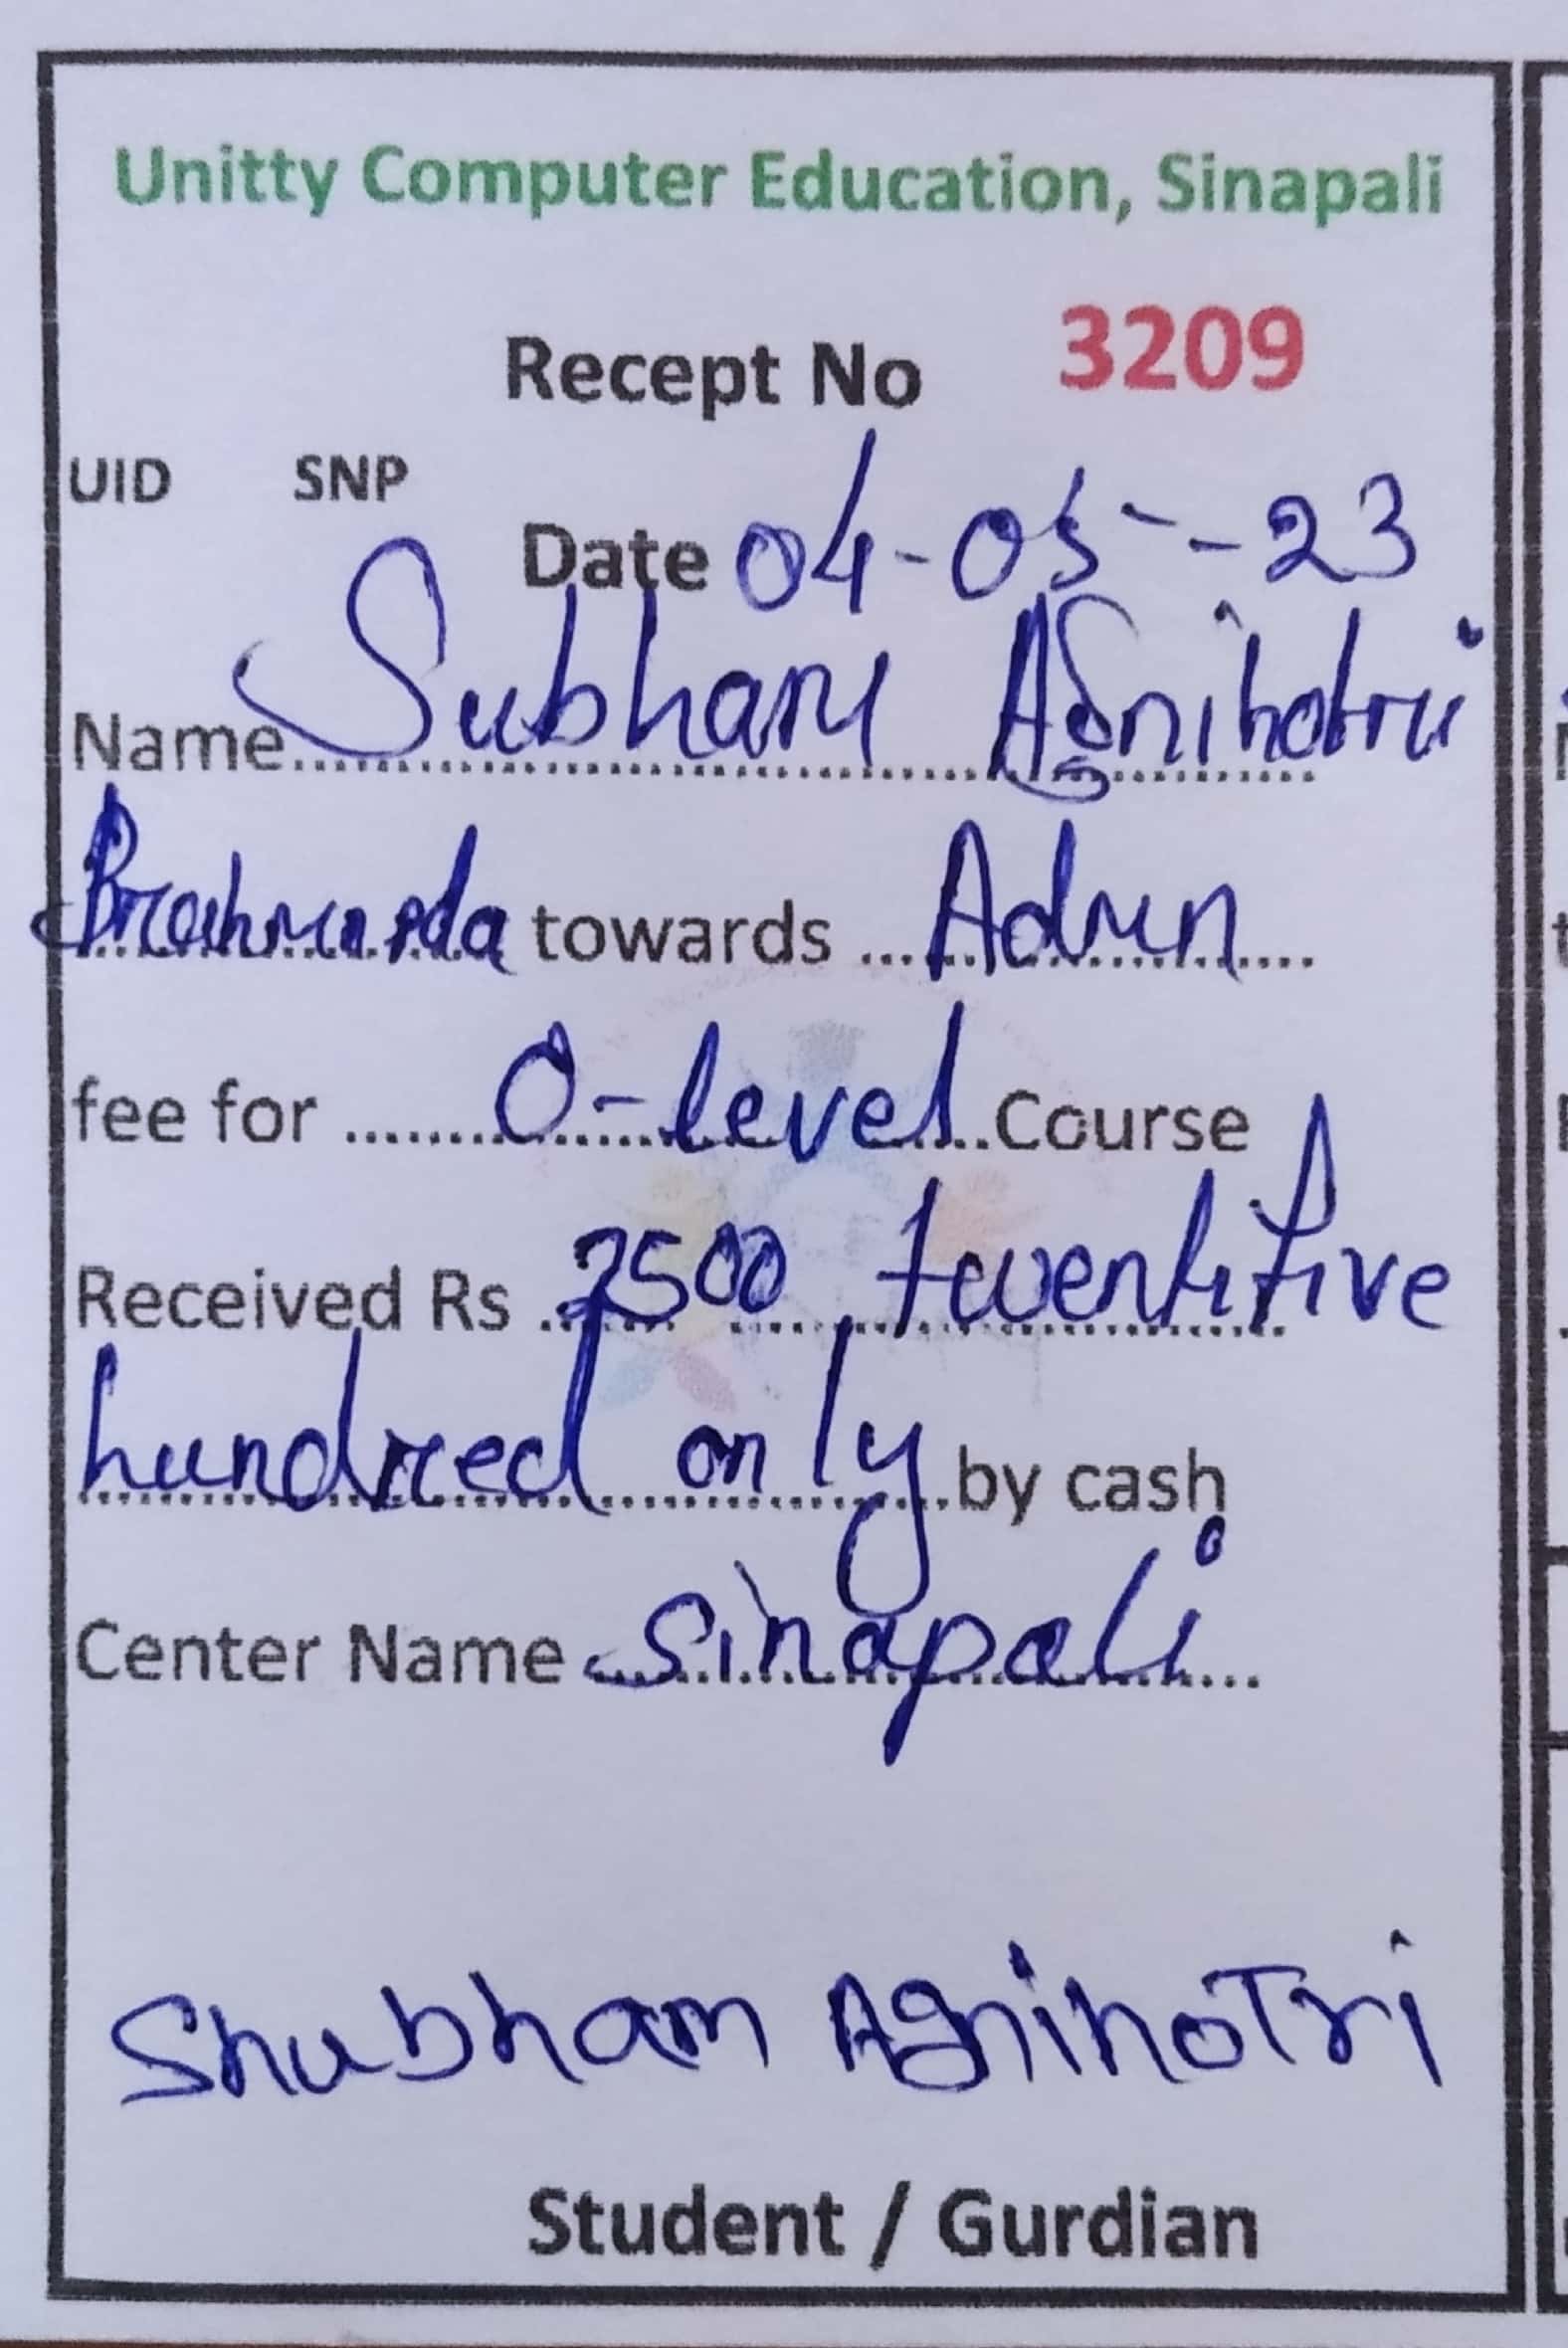 Unitty Computer Education, Sinapali
Recept No 3209
UID SNP
Date 04-05-23
Name Subham Agnihotri
towards Admn
fee for O-level Course
Received Rs 2500 twentifive
hundred only by cash
Center Name Sinapali
Shubham Agnihotri
Student / Gurdian